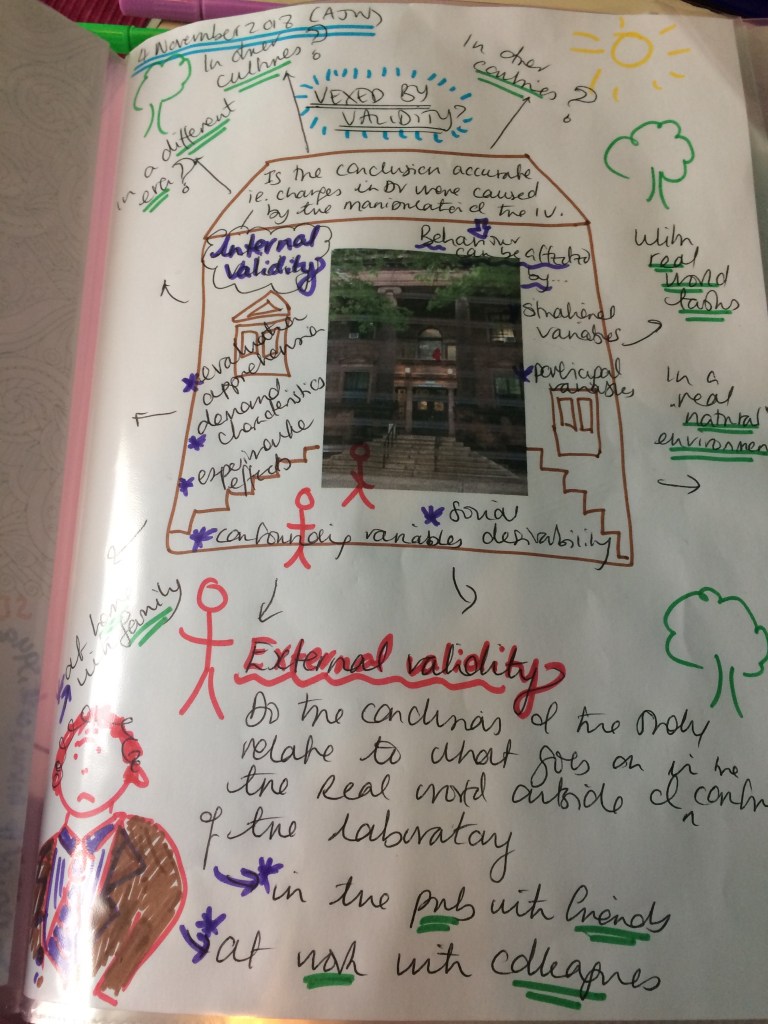 4 November 2018 (AJW)
In other
cultures?
In other
countries?
VEXED BY
VALIDITY?
in a different
era?
Is the conclusion accurate
ie. changes in DV were caused
by the manipulation of the IV.
Internal
Validity
Behaviour
can be affected
by...
situational
variables
* participant
variables
* evaluation
apprehension
* demand
characteristics
* experimenter
effects
* social
desirability
* confounding variables
With
real
world
tasks
In a
real
natural
environment
at home
with family
External validity
Do the conclusions of the study
relate to what goes on in the
the real world outside of
of the laboratory
* in the pub with friends
* at work with colleagues